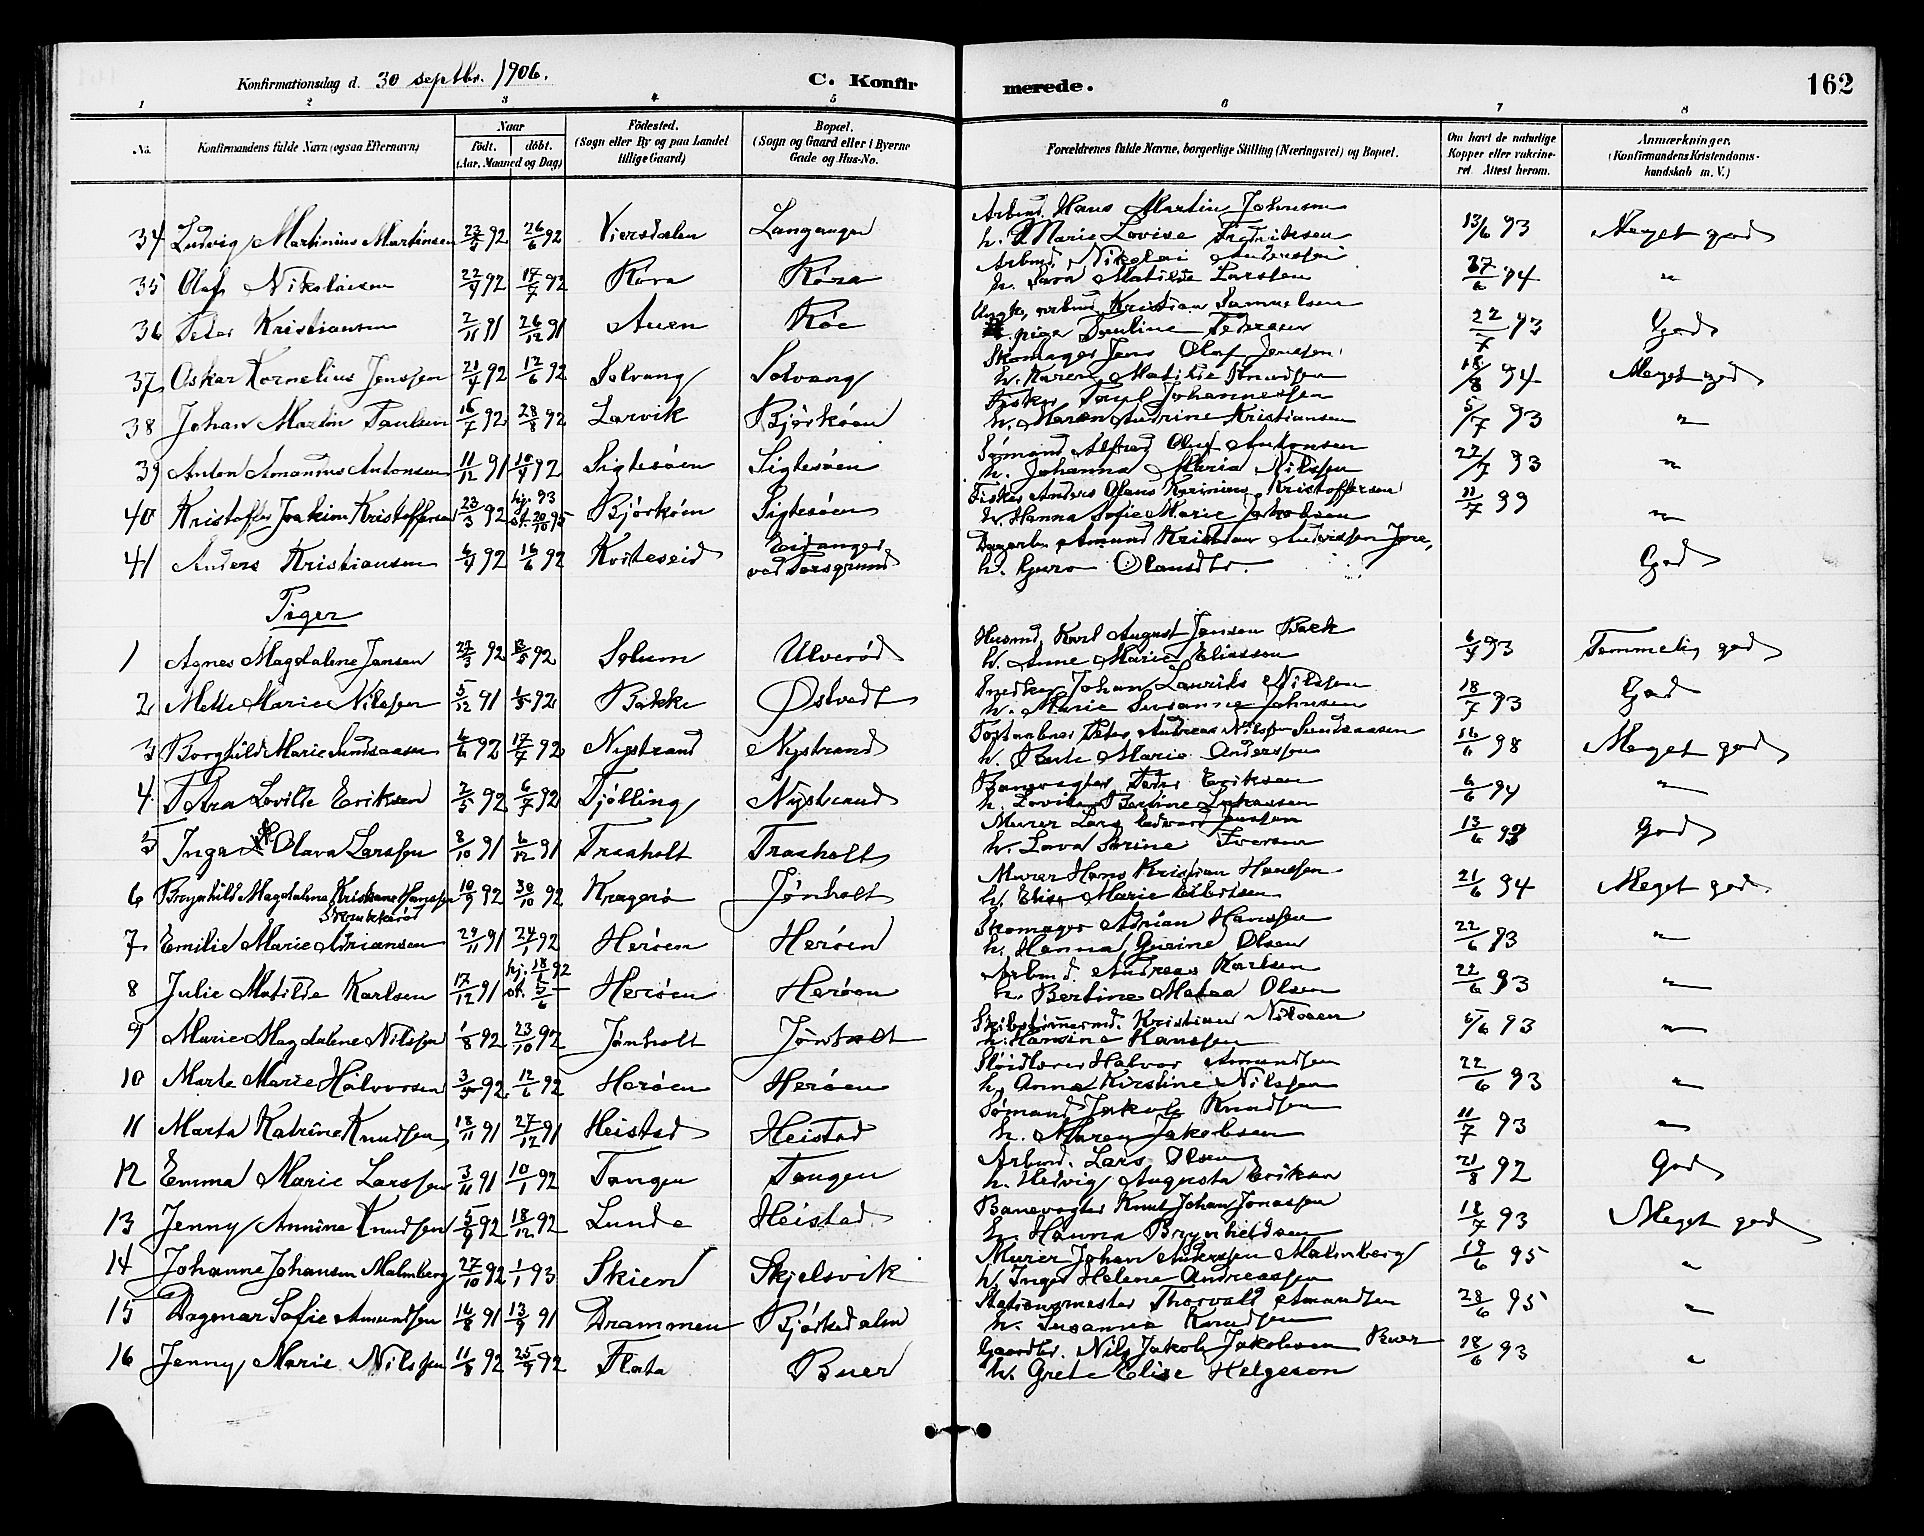 Konfirmationsdag d. 30 septbr. 1906. C. Konfirmerede. 162
1 2 3 4 5 6 7 8
No. Konfirmandens fulde Navn (ogsaa Efternavn) Naar født. døbt. (Aar, Maaned og Dag) Fødested. (Sogn eller By og paa Landet tillige Gaard) Bopæl. (Sogn og Gaard eller i Byerne Gade og Hus-No. Forældrenes fulde Navne, borgerlige Stilling (Næringsvei) og Bopæl. Om havt de naturlige Kopper eller vakcineret. Attest herom. Anmærkninger. (Konfirmandens Kristendomskundskab m. V.)
34 Ludvig Martinius Martinsen 23/5 92 26/6 92 Viersdalen Langangen Arbmd. Hans Martin Johnsen h. Marie Lovise Fredriksen 13/6 93 Meget god
35 Olaf Nikolaisen 22/4 92 17/7 92 Röra Röra Arbmd. Nikolai Andersen h. Sara Matilde Larssen 27/6 94 "
36 Peder Kristiansen 2/11 91 26/12 91 Auen Röe Ungk. arbmd. Kristian Samuelsen pige Pauline Pedersen 22/7 93 God
37 Oskar Kornelius Jenssen 21/4 92 12/6 92 Solvang Solvang Skomager Jens Olaf Jenssen h. Karen Matilde Knudsen 18/8 94 Meget god
38 Johan Martin Paulsen 16/7 92 28/8 92 Larvik Bjørkøen Fisker Paul Johannessen h. Maren Andrine Kristiansen 5/7 93 "
39 Anton Amandus Antonsen 11/12 91 10/4 92 Sigtesøen Sigtesøen Sømand Alfred Olaf Antonsen h. Johanna Maria Nilssen 22/7 93 "
40 Kristoffer Joakim Kristoffersen 23/3 92 hj. 93 st. 20/10 95 Bjørkøen Sigtesøen Fisker Anders Olaus Kristoffersen h. Hanna Sofie Marie Jakobsen 11/7 99 "
41 Anders Kristiansen 6/4 92 16/6 92 Korteseid Eidanger ved Porsgrund Dagarb. Amund Kristian Andersen h. Guro Olausdtr. God
Piger
1 Agnes Magdalene Jansen 22/3 92 8/5 92 Solum Ulverød Husmd. Karl August Jansen Bæck h. Anne Marie Eliassen 6/4 93 Temmelig god
2 Mette Marie Nilssen 5/12 91 6/5 92 Bakke Østvedt Snedker Johan Laurits Nilssen h. Marie Susanne Johnsen 18/7 93 God
3 Borghild Marie Sundsaasen 6/6 92 17/7 92 Nystrand Nystrand Postaabner Peter Andreas Nilsen Sundsaasen h. Berte Marie Anderssen 16/6 98 Meget god
4 Petra Lovilde Eriksen 2/5 92 6/7 92 Tjølling Nystrand Banevogter Peder Eriksen h. Lovise Bertine Lukassen 6/6 94 "
5 Inga Olava Larssen 8/10 91 6/12 91 Traaholt Traaholt Murer Lars Edvard Jenssen h. Lava Serine Iversen 13/6 93 God
6 Brynhild Magdalene Kristiane Hanssen Skrukkerød 10/9 92 30/10 92 Kragerø Jønholt Murer Hans Kristian Hanssen h. Elise Marie Albertsen 21/6 94 Meget god
7 Emilie Marie Adriansen 29/11 91 24/1 92 Herøen Herøen Skomager Adrian Hanssen h. Hanna Gurine Olsen 22/6 93 "
8 Julie Matilde Karlsen 17/12 91 hj. 18/1 92 st. 5/6 — Herøen Herøen Arbmd. Andreas Karlsen h. Bertine Matea Olsen 22/6 93 "
9 Marie Magdalene Nilssen 1/8 92 23/10 92 Jønholt Jønholt Skibstømmermd. Kristian Nilssen h. Hansine Hanssen 5/6 93 "
10 Marte Marie Halvorsen 3/5 92 12/6 92 Herøen Herøen Sløidlærer Halvor Amundsen h. Anna Kirstine Nilssen 22/6 93 "
11 Marta Katrine Knudsen 18/11 91 27/12 91 Heistad Heistad Sømand Jakob Knudsen h. Maren Jakobsen 11/7 93 "
12 Emma Marie Larssen 3/11 91 10/1 92 Tangen Tangen Arbmd. Lars Olsen h. Hedvig Augusta Eriksen 21/8 92 God
13 Jenny Annine Knudsen 5/9 92 18/12 92 Lunde Heistad Banevogter Knut Johan Jonassen h. Hanna Brynhildsen 18/7 93 Meget god
14 Johanne Johansen Malmberg 27/10 92 1/1 93 Skien Skjelsvik Murer Johan Anderssen Malmberg h. Inger Helene Andreassen 19/6 95 "
15 Dagmar Sofie Amundsen 16/8 91 13/9 91 Drammen Bjørkedalen Stationsmester Thorvald Amundsen h. Susanne Knudsen 28/6 95 "
16 Jenny Marie Nilssen 11/8 92 25/9 92 Flata Buer Gaardbr. Nils Jakob Jakobsen Buer h. Grete Elise Helgeson 18/6 93 "